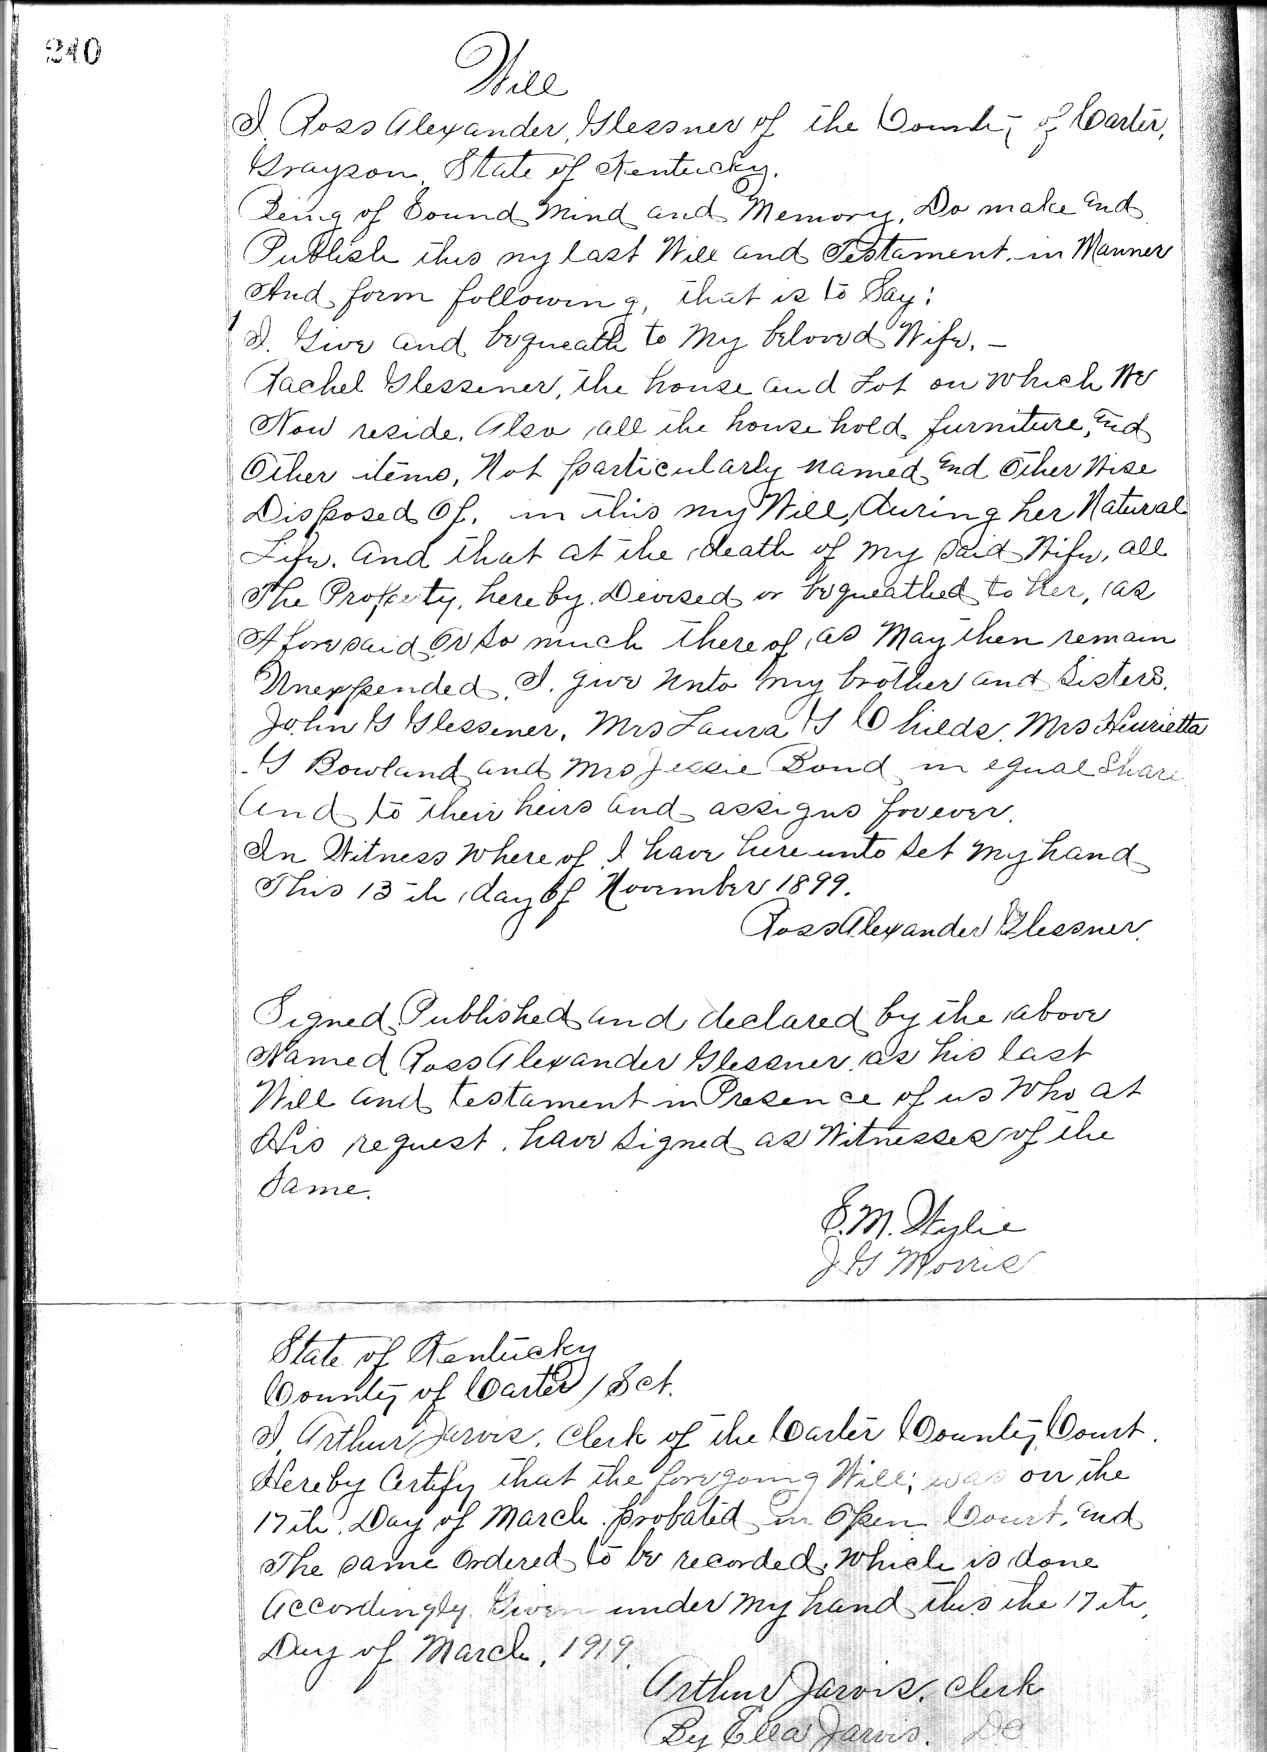 240
Will
I, Ross Alexander, Glessner of the County of Carter,
Grayson, State of Kentucky.
Being of Sound Mind and Memory, Do make and
Publish this my last Will and Testament, in Manner
And form following, that is to Say:
1 I. Give and bequeath to My beloved Wife, —
Rachel Glessener, the house and Lot on which We
Now reside. Also all the household furniture, and
Other items, Not particularly named and Other Wise
Disposed Of, in this my Will, during her Natural
Life. And that at the death of my said Wife, all
The Property, hereby Devised or bequeathed to her, as
Aforesaid, Or so much there of, as May then remain
Unexpended, I. give unto my brother and Sisters.
John G Glessener, Mrs Laura G Childs, Mrs Henrietta
G Bowland and Mrs Jessie Bond in equal Share
And to their heirs and assigns forever.
In Witness where of I have here unto Set My hand
This 13th day of November 1899.
Ross Alexander Glessner.
Signed, Published and declared by the above
Named Ross Alexander Glessner. as his last
Will and testament in Presence of us Who at
His request, have Signed as Witnesses of the
Same.
E. M. Wylie
J G Morris
State of Kentucky
County of Carter / Sct.
I, Arthur Jarvis, Clerk of the Carter County Court.
Hereby Certify that the foregoing Will; was on the
17th. Day of March probated in Open Court, and
The same Ordered to be recorded, which is done
Accordingly. Given under my hand this the 17th,
Day of March, 1919.
Arthur Jarvis, Clerk
By Ella Jarvis. DC